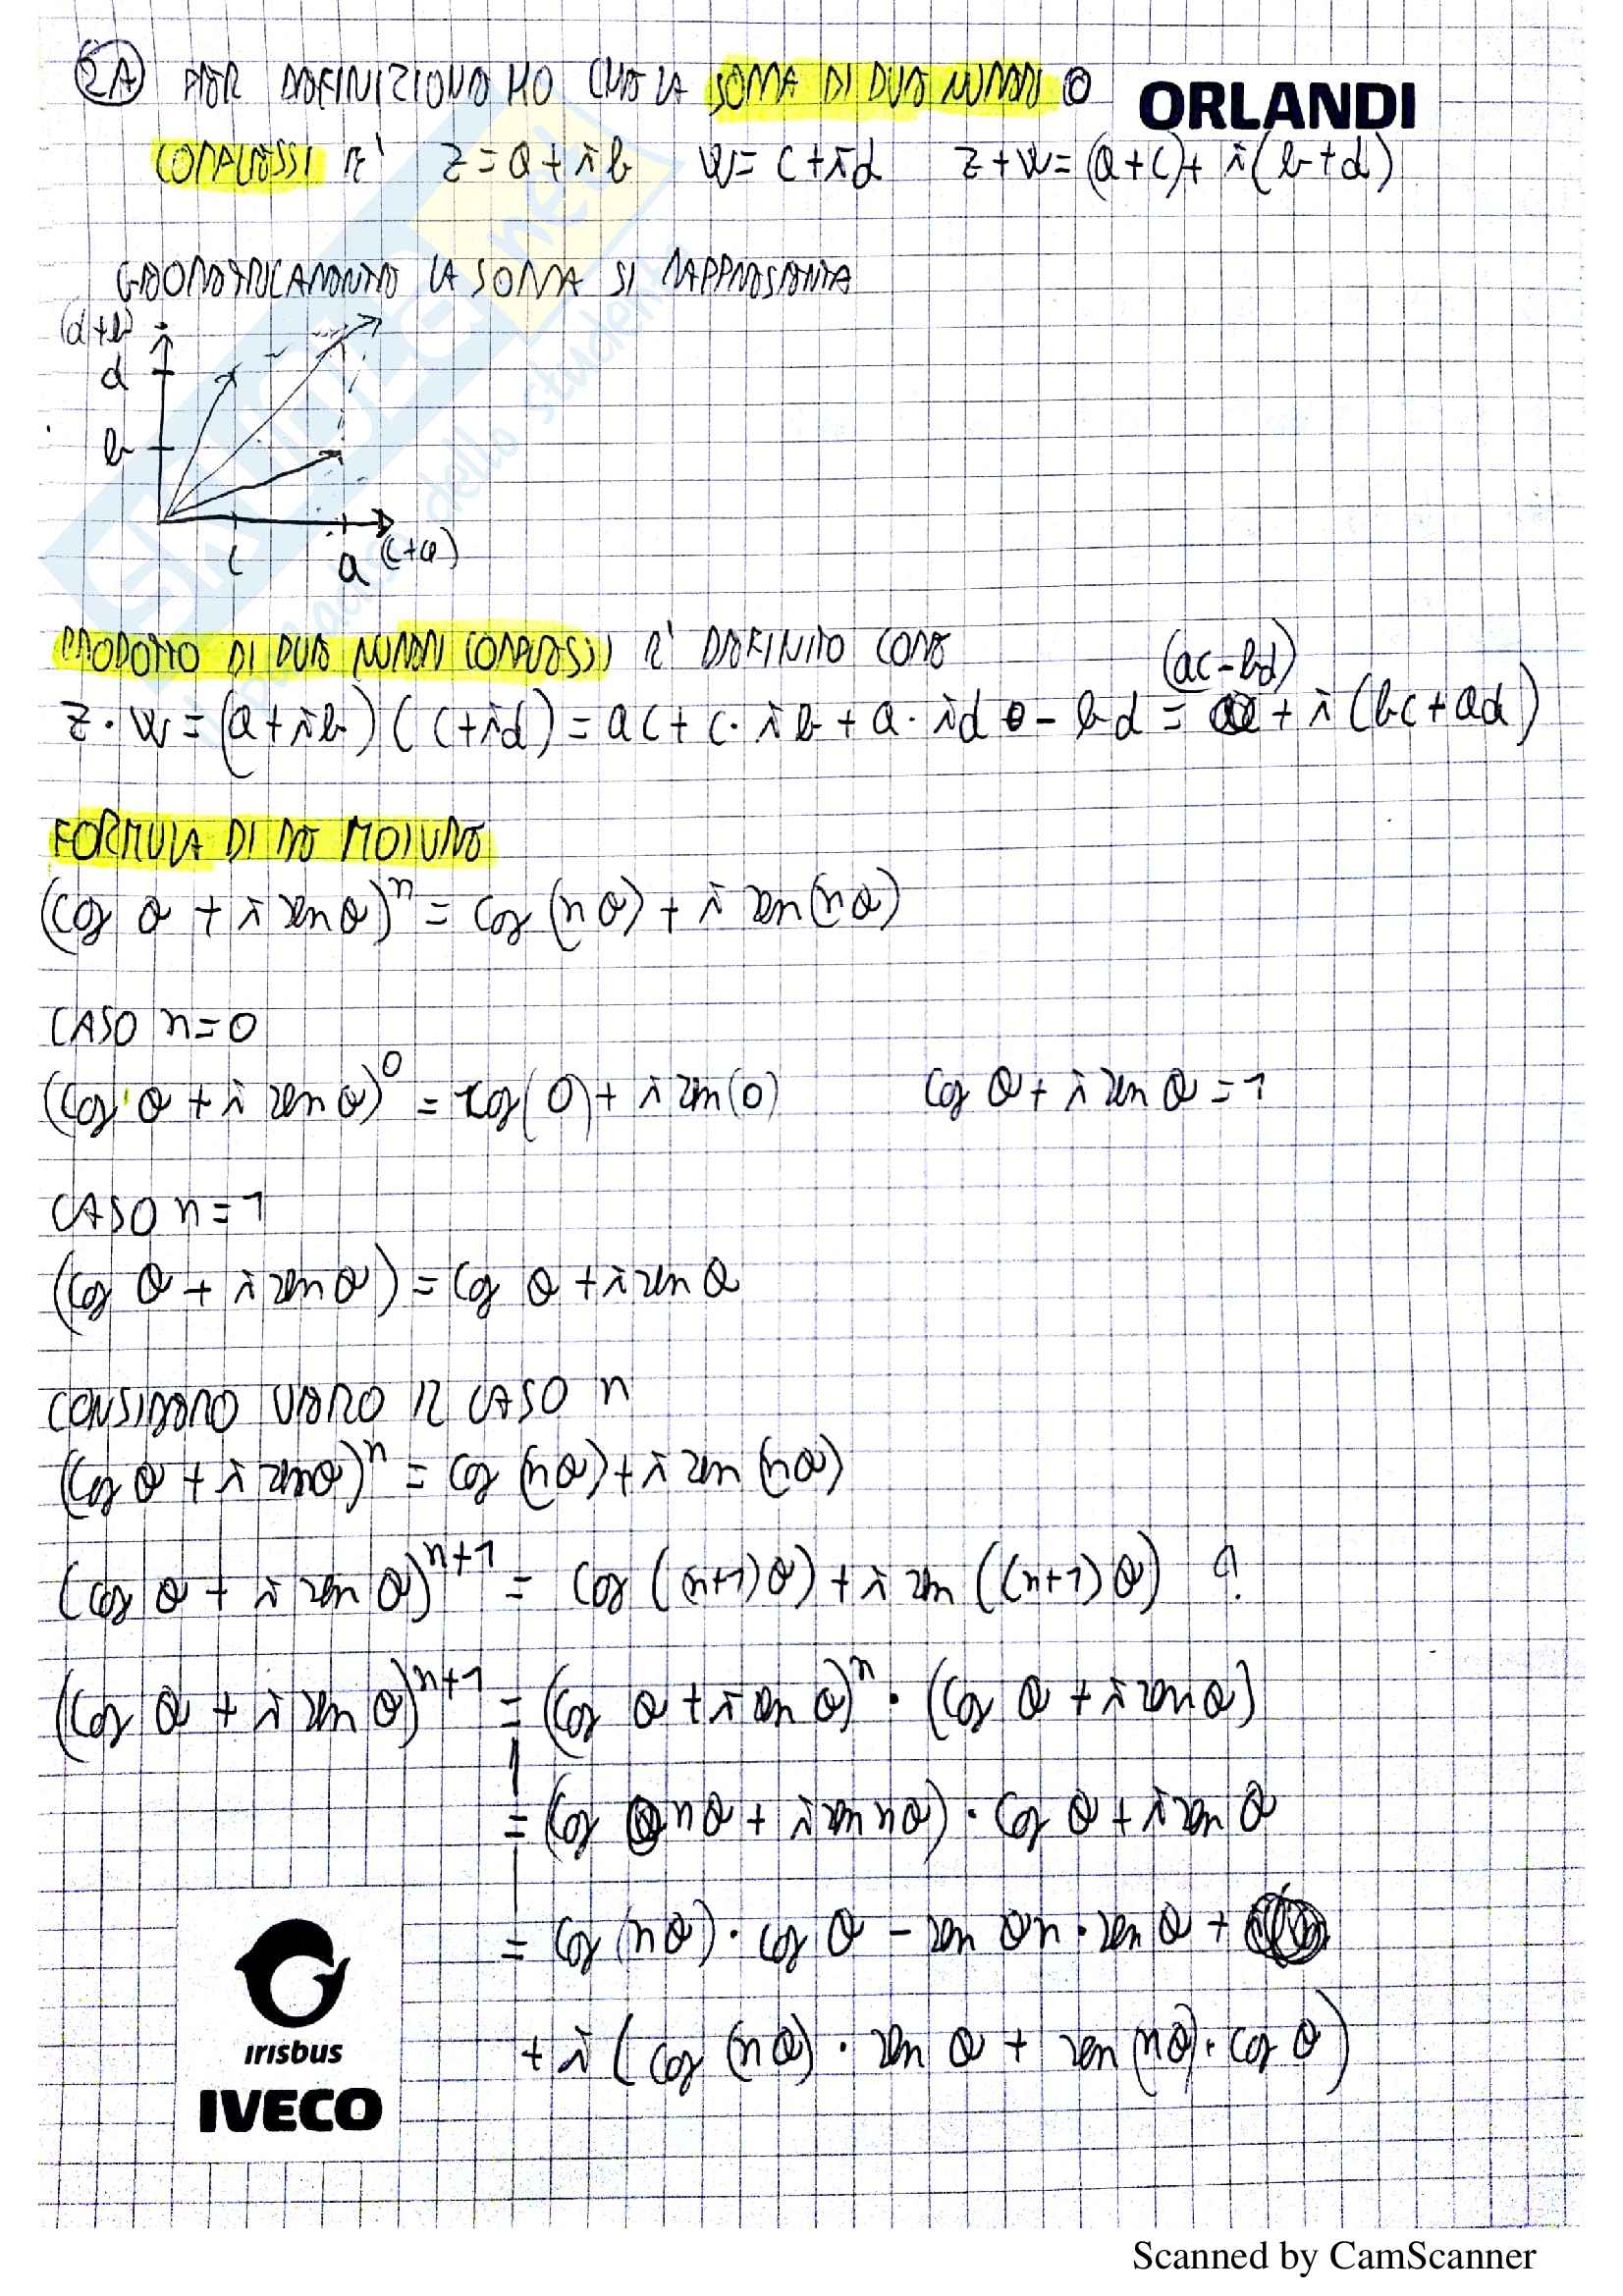 2A) PER DEFINIZIONE HO CHE LA SOMMA DI DUE NUMERI
ORLANDI
COMPLESSI E' z = a + ib w = c + id z + w = (a + c) + i(b + d)
GEOMETRICAMENTE LA SOMMA SI RAPPRESENTA
(d+b)
d
b
c a (c+a)
PRODOTTO DI DUE NUMERI COMPLESSI E' DEFINITO COME
z · w = (a + ib)(c + id) = ac + c · ib + a · id - bd = (ac - bd) + i(bc + ad)
FORMULA DI DE MOIVRE
(cos θ + i sen θ)^n = cos (nθ) + i sen(nθ)
CASO n = 0
(cos θ + i sen θ)^0 = cos(0) + i sen(0) cos θ + i sen θ = 1
CASO n = 1
(cos θ + i sen θ) = cos θ + i sen θ
CONSIDERO VERO IL CASO n
(cos θ + i sen θ)^n = cos (nθ) + i sen (nθ)
(cos θ + i sen θ)^n+1 = cos ((n+1)θ) + i sen ((n+1)θ) ?
(cos θ + i sen θ)^n+1 = (cos θ + i sen θ)^n · (cos θ + i sen θ)
= (cos nθ + i sen nθ) · cos θ + i sen θ
= cos (nθ) · cos θ - sen θn · sen θ +
+ i (cos (nθ) · sen θ + sen (nθ) · cos θ)
irisbus
IVECO
SKUOLA.net
dello studente
Scanned by CamScanner